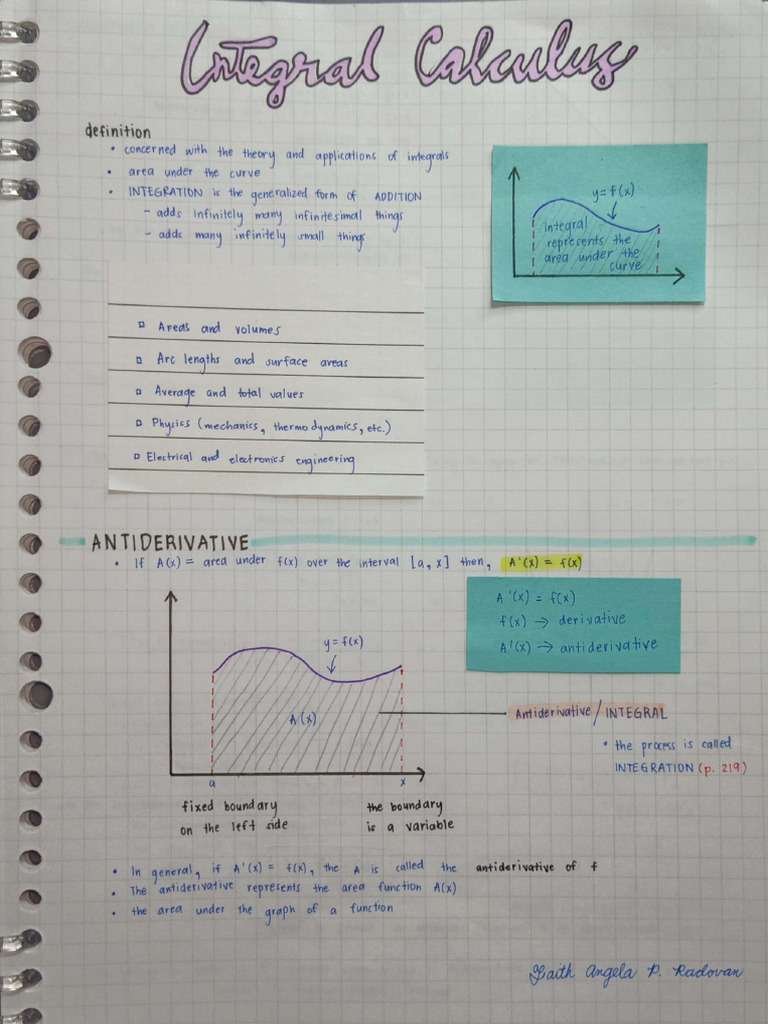 Integral Calculus
definition
• concerned with the theory and applications of integrals
• area under the curve
• INTEGRATION is the generalized form of ADDITION
- adds infinitely many infinitesimal things
- adds many infinitely small things
y = f(x)
Integral
represents the
area under the
curve
Areas and volumes
Arc lengths and surface areas
Average and total values
Physics (mechanics, thermodynamics, etc.)
Electrical and electronics engineering
ANTIDERIVATIVE
• If A(x) = area under f(x) over the interval [a, x] then, A'(x) = f(x)
A'(x) = f(x)
f(x) → derivative
A'(x) → antiderivative
y = f(x)
A(x)
Antiderivative / INTEGRAL
• the process is called
INTEGRATION (p. 219)
a x
fixed boundary
on the left side
the boundary
is a variable
• In general, if A'(x) = f(x), the A is called the antiderivative of f
• The antiderivative represents the area function A(x)
• the area under the graph of a function
Faith Angela P. Radovan